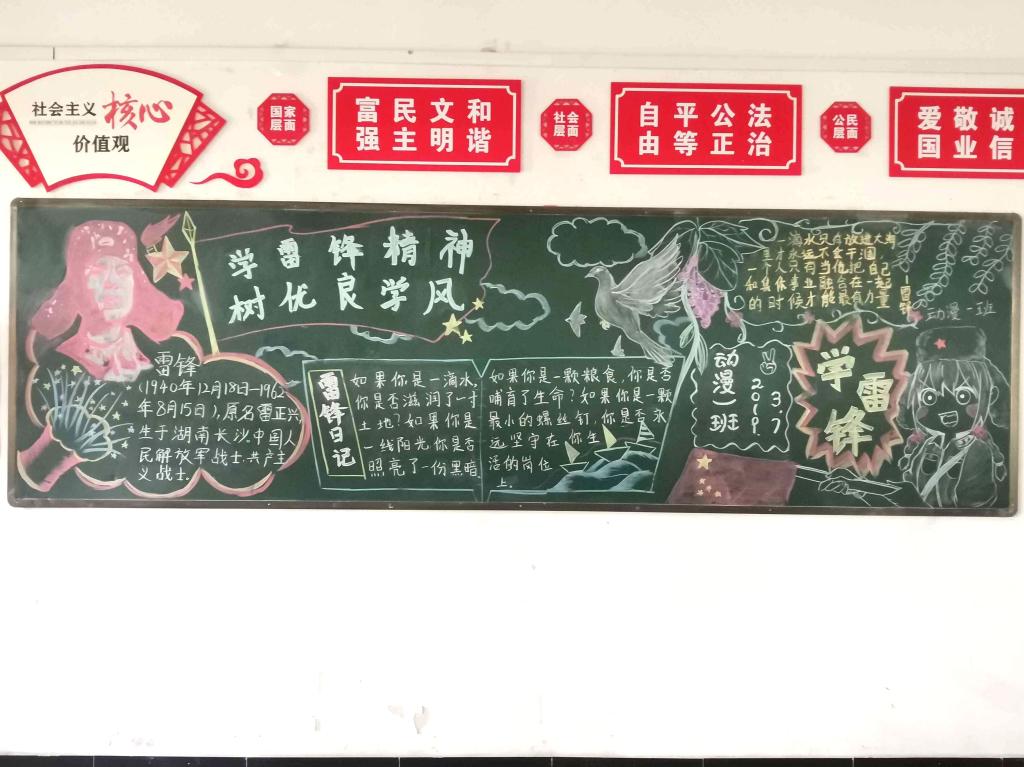 社会主义核心
价值观
国家
层面
富民文和
强主明谐
社会
层面
自平公法
由等正治
公民
层面
爱敬诚
国业信
学雷锋精神
树优良学风
雷锋
(1940年12月18日—1962
年8月15日),原名雷正兴,
生于湖南长沙.中国人
民解放军战士.共产主
义战士.
雷锋日记
如果你是一滴水,
你是否滋润了一寸
土地?如果你是
一线阳光,你是否
照亮了一份黑暗.
如果你是一颗粮食,你是否
哺育了生命?如果你是一颗
最小的螺丝钉,你是否永
远坚守在你生
活的岗位
上.
动漫一班
2019.
3.7
一滴水只有放进大海
里才永远不会干涸,
一个人只有当他把自己
和集体事业融合在一起
的时候才能最有力量
——雷锋
动漫一班
学雷锋